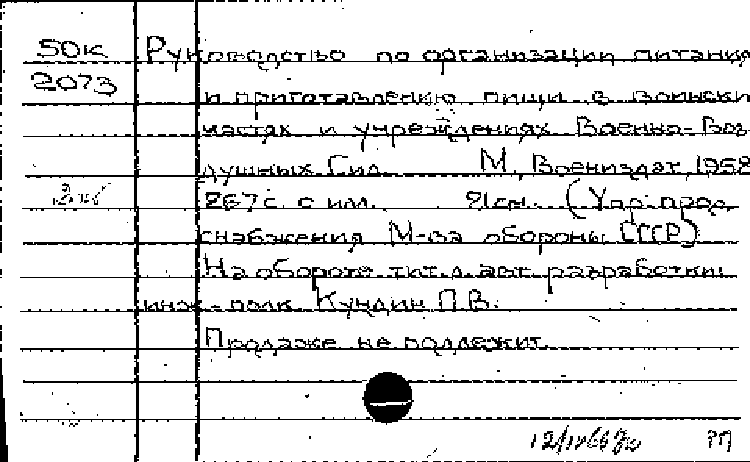 50к Руководство по организации питания
2073 и приготовлению пищи в воински
частях и учреждениях Военно-Воз
душных Сил. М, Воениздат, 1958
267 с. с илл. 21см. (Упр. прод.
снабжения М-ва обороны СССР)
На обороте тит. л. авт. разработки
инж.-полк Кундин П.В.
Продаже не подлежит.